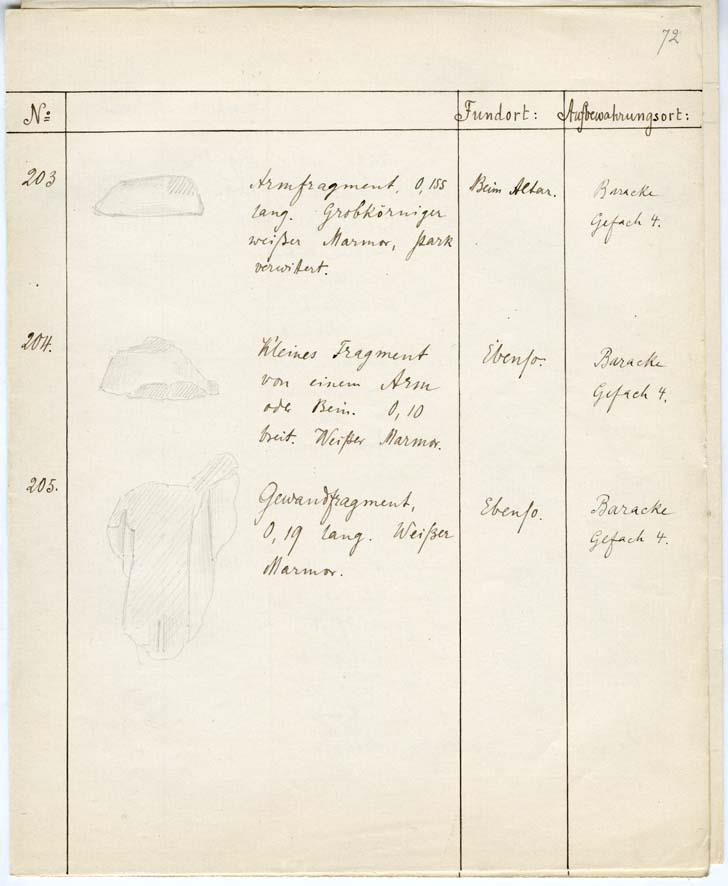 72
No: Fundort: Aufbewahrungsort:
203 Armfragment, 0,155 Beim Altar. Baracke
lang. Grobkörniger Gefach 4.
weißer Marmor, stark
verwittert.
204. Kleines Fragment Ebenso. Baracke
von einem Arm Gefach 4.
oder Bein. 0,10
breit. Weißer Marmor.
205. Gewandfragment, Ebenso. Baracke
0,19 lang. Weißer Gefach 4.
Marmor.